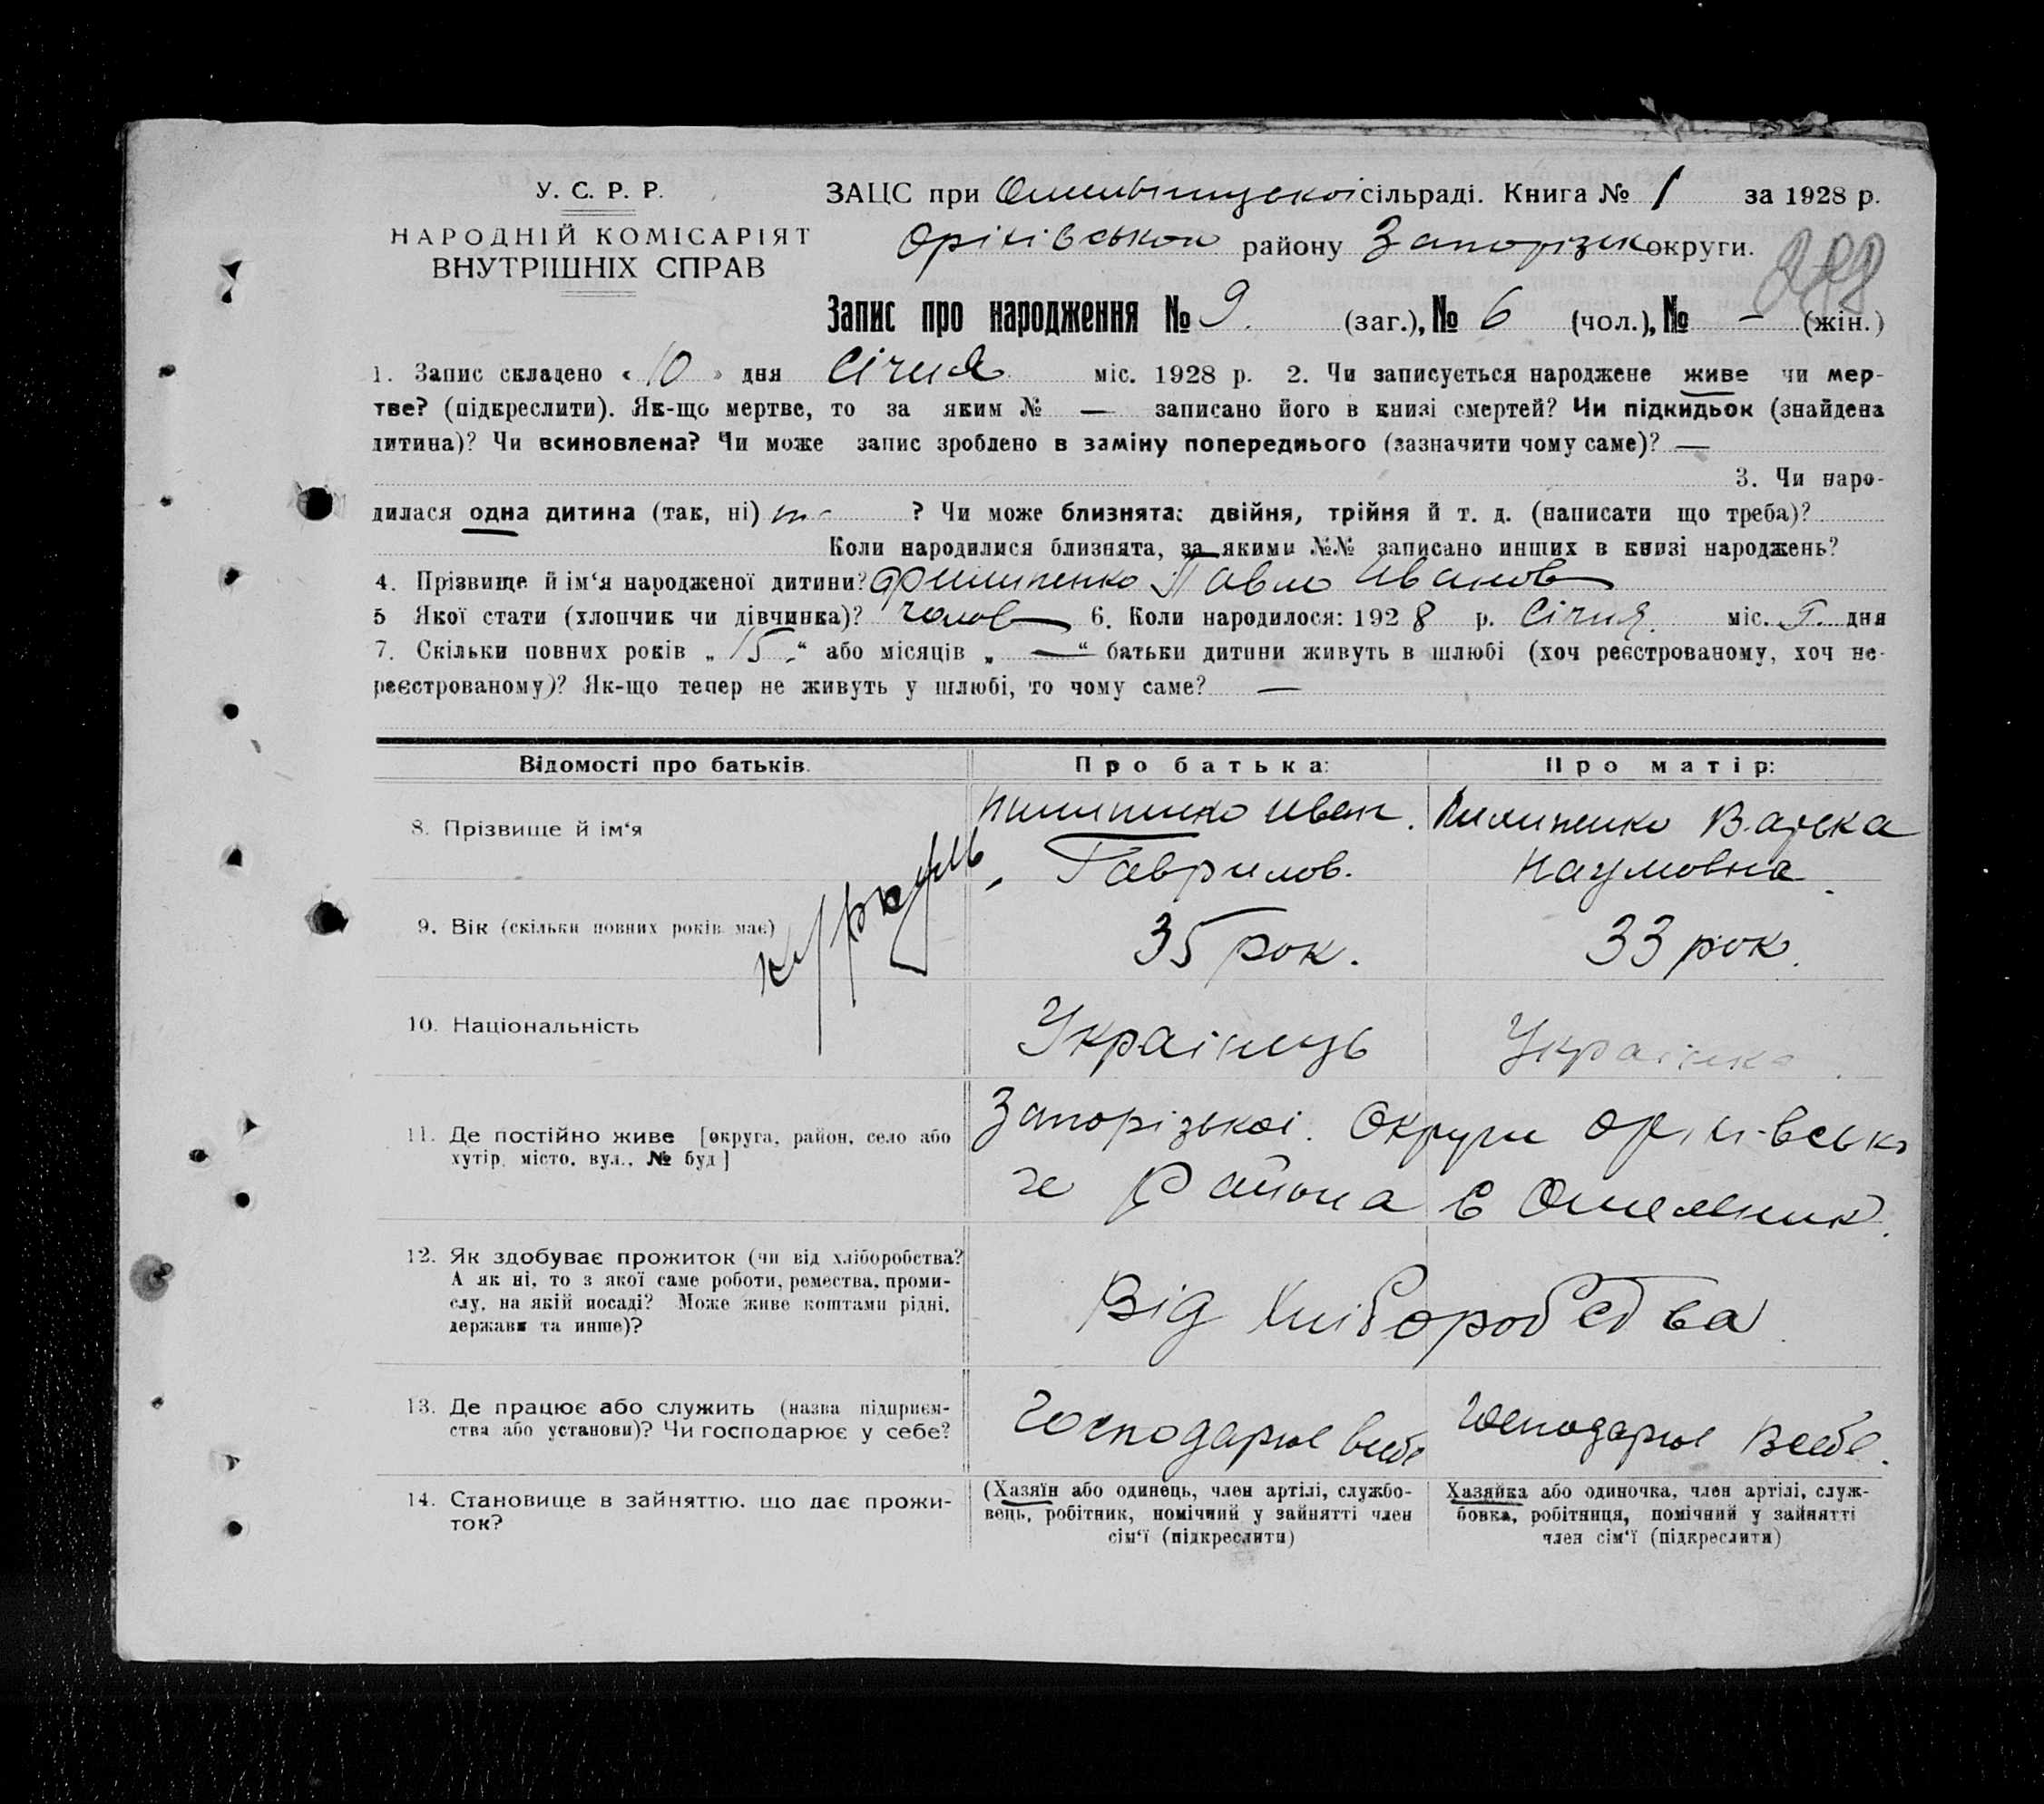 У. С. Р. Р.
НАРОДНІЙ КОМІСАРІЯТ
ВНУТРІШНІХ СПРАВ
ЗАЦС при сільраді. Книга № 1 за 1928 р.
Оріхівської району Запорізьк округи.
Запис про народження № 9 (заг.), № 6 (чол.), № – (жін.)
1. Запис складено « 10 » дня Січня міс. 1928 р. 2. Чи записується народжене живе чи мер-
тве? (підкреслити). Як-що мертве, то за яким № — записано його в книзі смертей? Чи підкидьок (знайдена
дитина)? Чи всиновлена? Чи може запис зроблено в заміну попереднього (зазначити чому саме)? —
3. Чи наро-
дилася одна дитина (так, ні) ? Чи може близнята: двійня, трійня й т. д. (написати що треба)?
Коли народилися близнята, за якими №№ записано инших в книзі народжень?
4. Прізвище й ім‘я народженої дитини? Филипенко Павло Иванов
5 Якої стати (хлопчик чи дівчинка)? чолов 6. Коли народилося: 1928 р. Січня. міс. дня
7. Скільки повних років „ 15 “ або місяців „ — “ батьки дитини живуть в шлюбі (хоч реєстрованому, хоч не-
реєстрованому)? Як-що тепер не живуть у шлюбі, то чому саме? —
Відомості про батьків.
Про батька:
Про матір:
8. Прізвище й ім‘я
Пилипенко Иван.
Гаврилов.
Пилипенко Варька
Наумовна.
куркуль
9. Вік (скільки повних років має)
35 рок.
33 рок.
10. Національність
Українець
Українка
11. Де постійно живе [округа, район, село або
хутір, місто, вул., № буд]
Запорізькоі. Округи Оріхівсько
го Района С Омельник.
12. Як здобуває прожиток (чи від хліборобства?
А як ні, то з якої саме роботи, ремества, проми-
слу, на якій посаді? Може живе коштами рідні,
держави та инше)?
Від Хліборобства
13. Де працює або служить (назва підприєм-
ства або установи)? Чи господарює у себе?
Господарює всебе
Господарює Всебе.
14. Становище в зайняттю, що дає прожи-
ток?
(Хазяїн або одинець, член артілі, службо-
вець, робітник, помічний у зайнятті член
сім‘ї (підкреслити)
Хазяйка або одиночка, член артілі, служ-
бовка, робітниця, помічний у зайнятті
член сім‘ї (підкреслити)